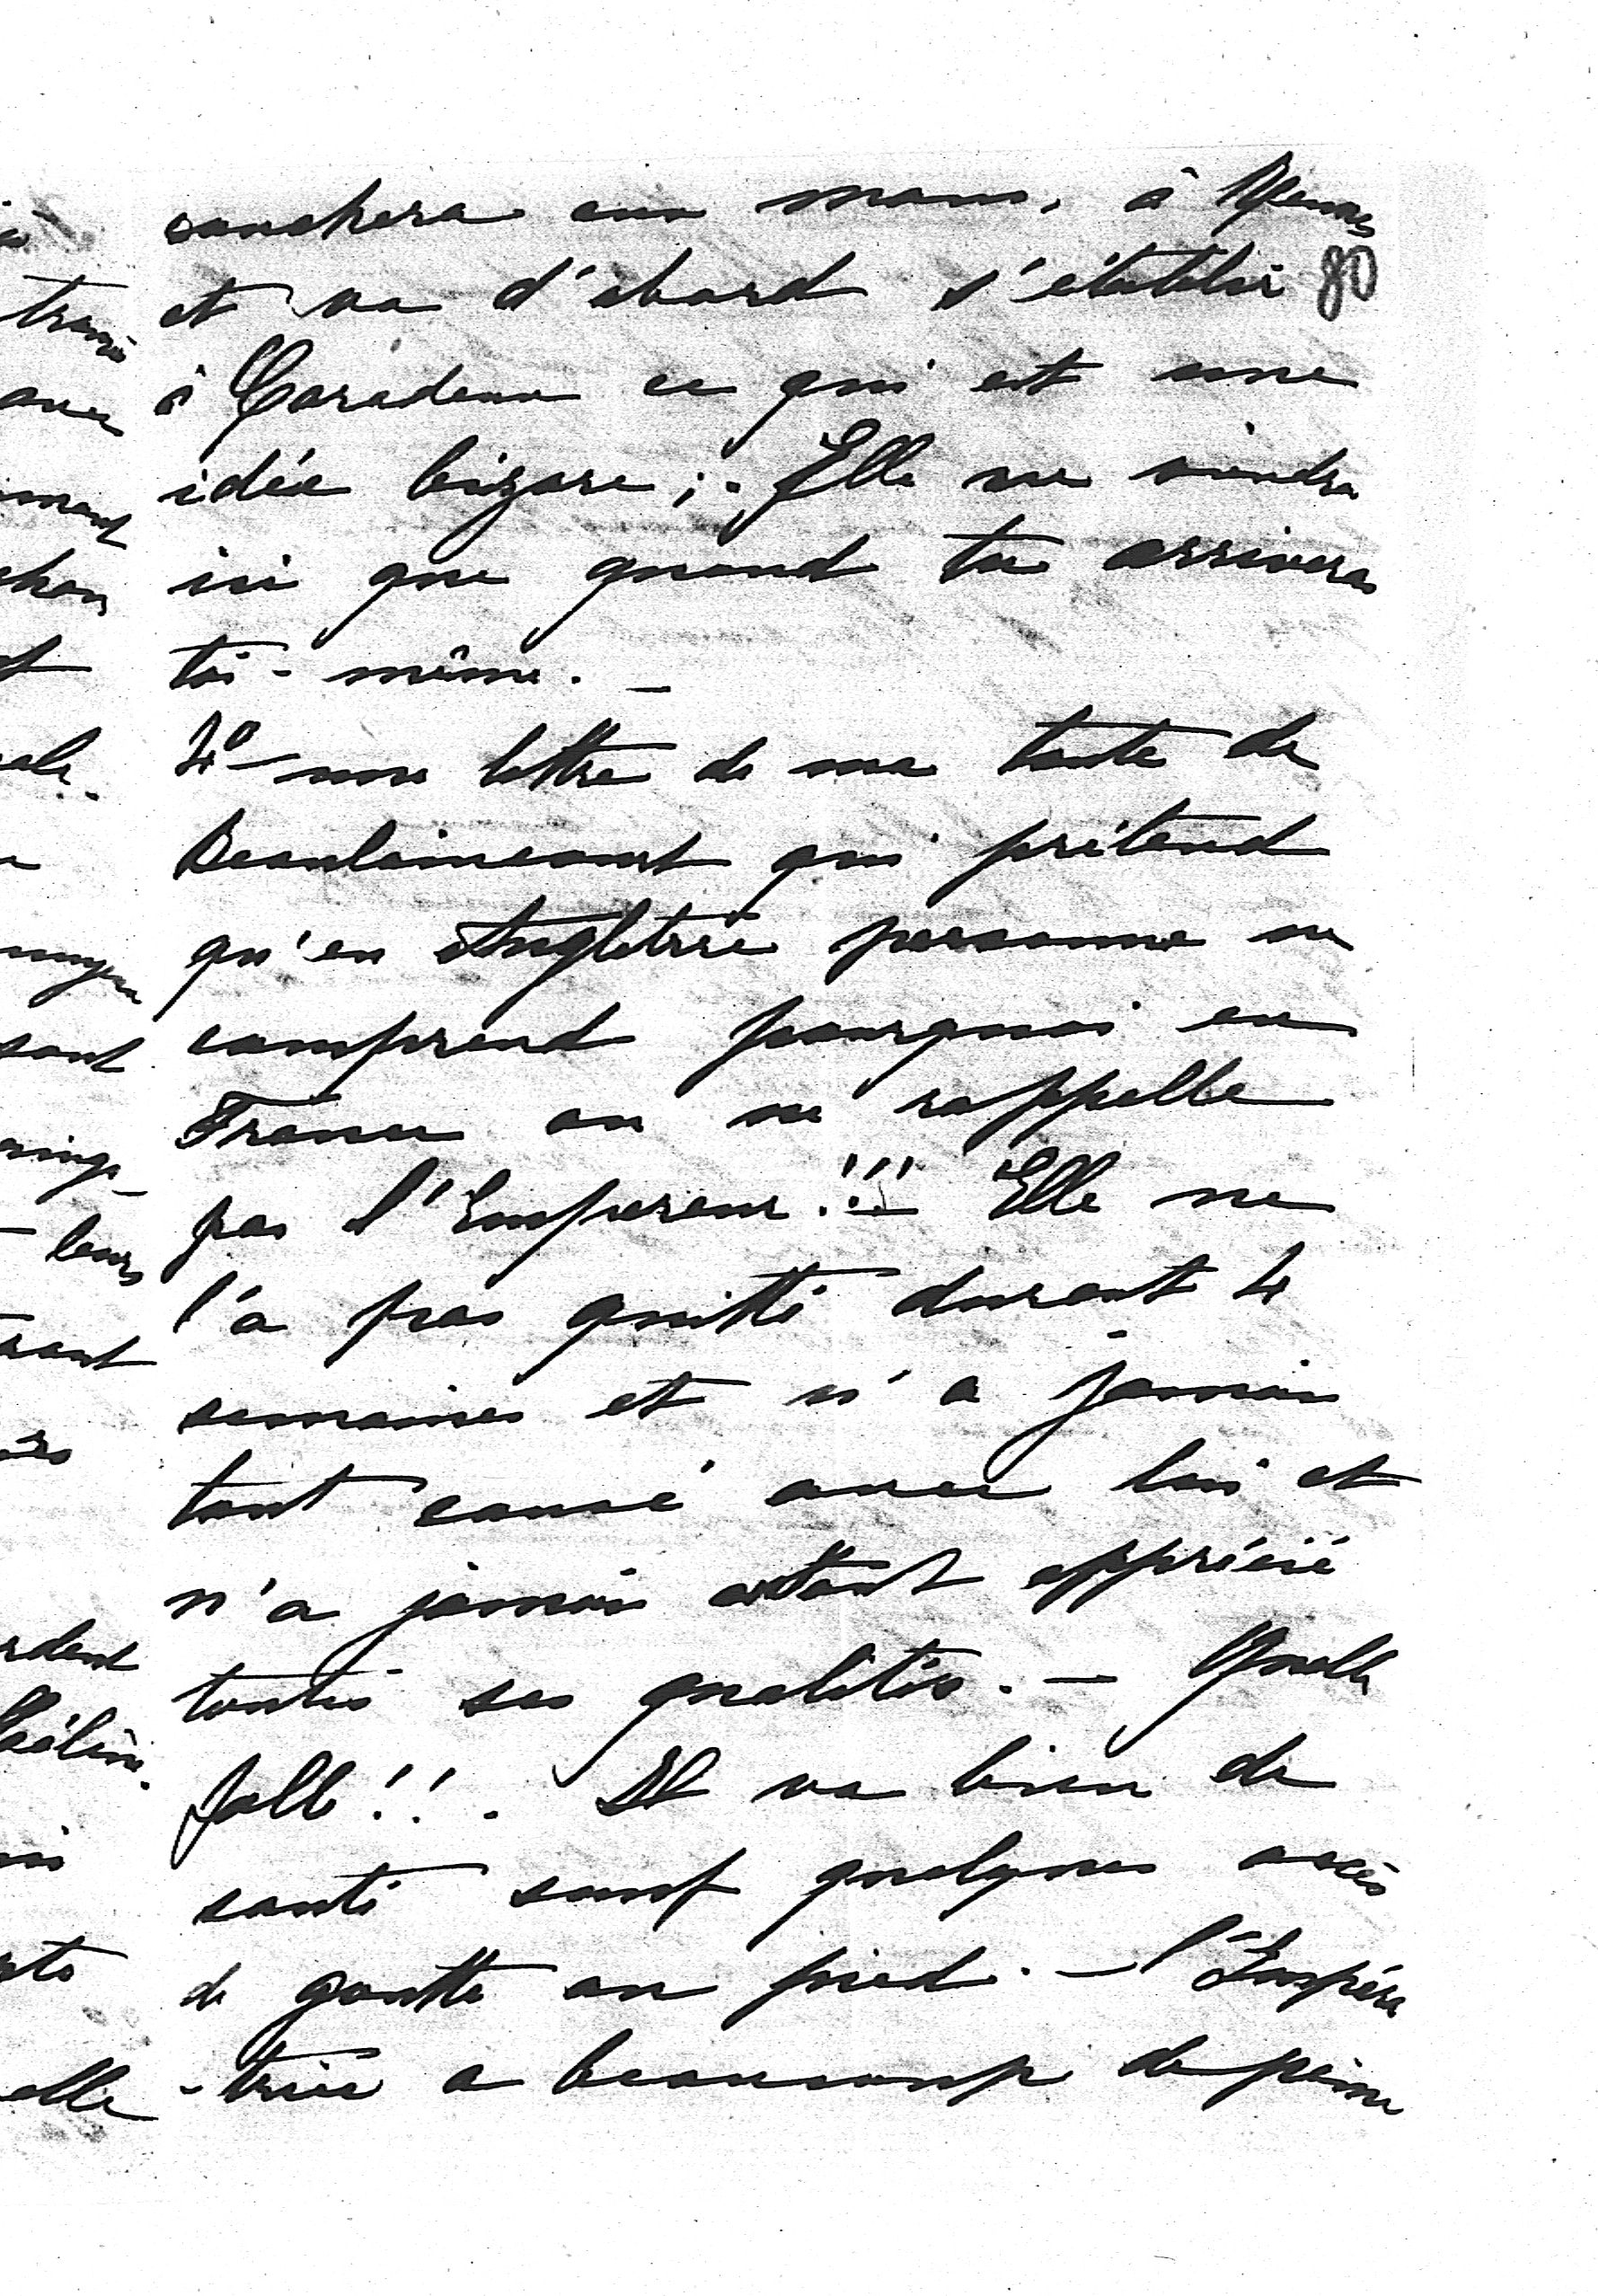 couchera au mans, à Rennes
80
et va d'abord s'établir
à Caradeuc ce qui est une
idée bizare ;. Elle ne viendra
ici que quand tu arriveras
toi-même. _
4° une lettre de ma tante de
Beaulaincourt qui prétend
qu'en Angleterre personne ne
comprend pourquoi en
France on ne rappelle
pas l'Empereur !!! Elle ne
l'a pas quitté durant 4
semaines et n'a jamais
tant causé avec lui et
n'a jamais autant apprécié
toutes ses qualités. — Quelle
folle !!. Il va bien de
santé sauf quelques accès
de goutte au pied. — l'Impéra
-trice a beaucoup de peine